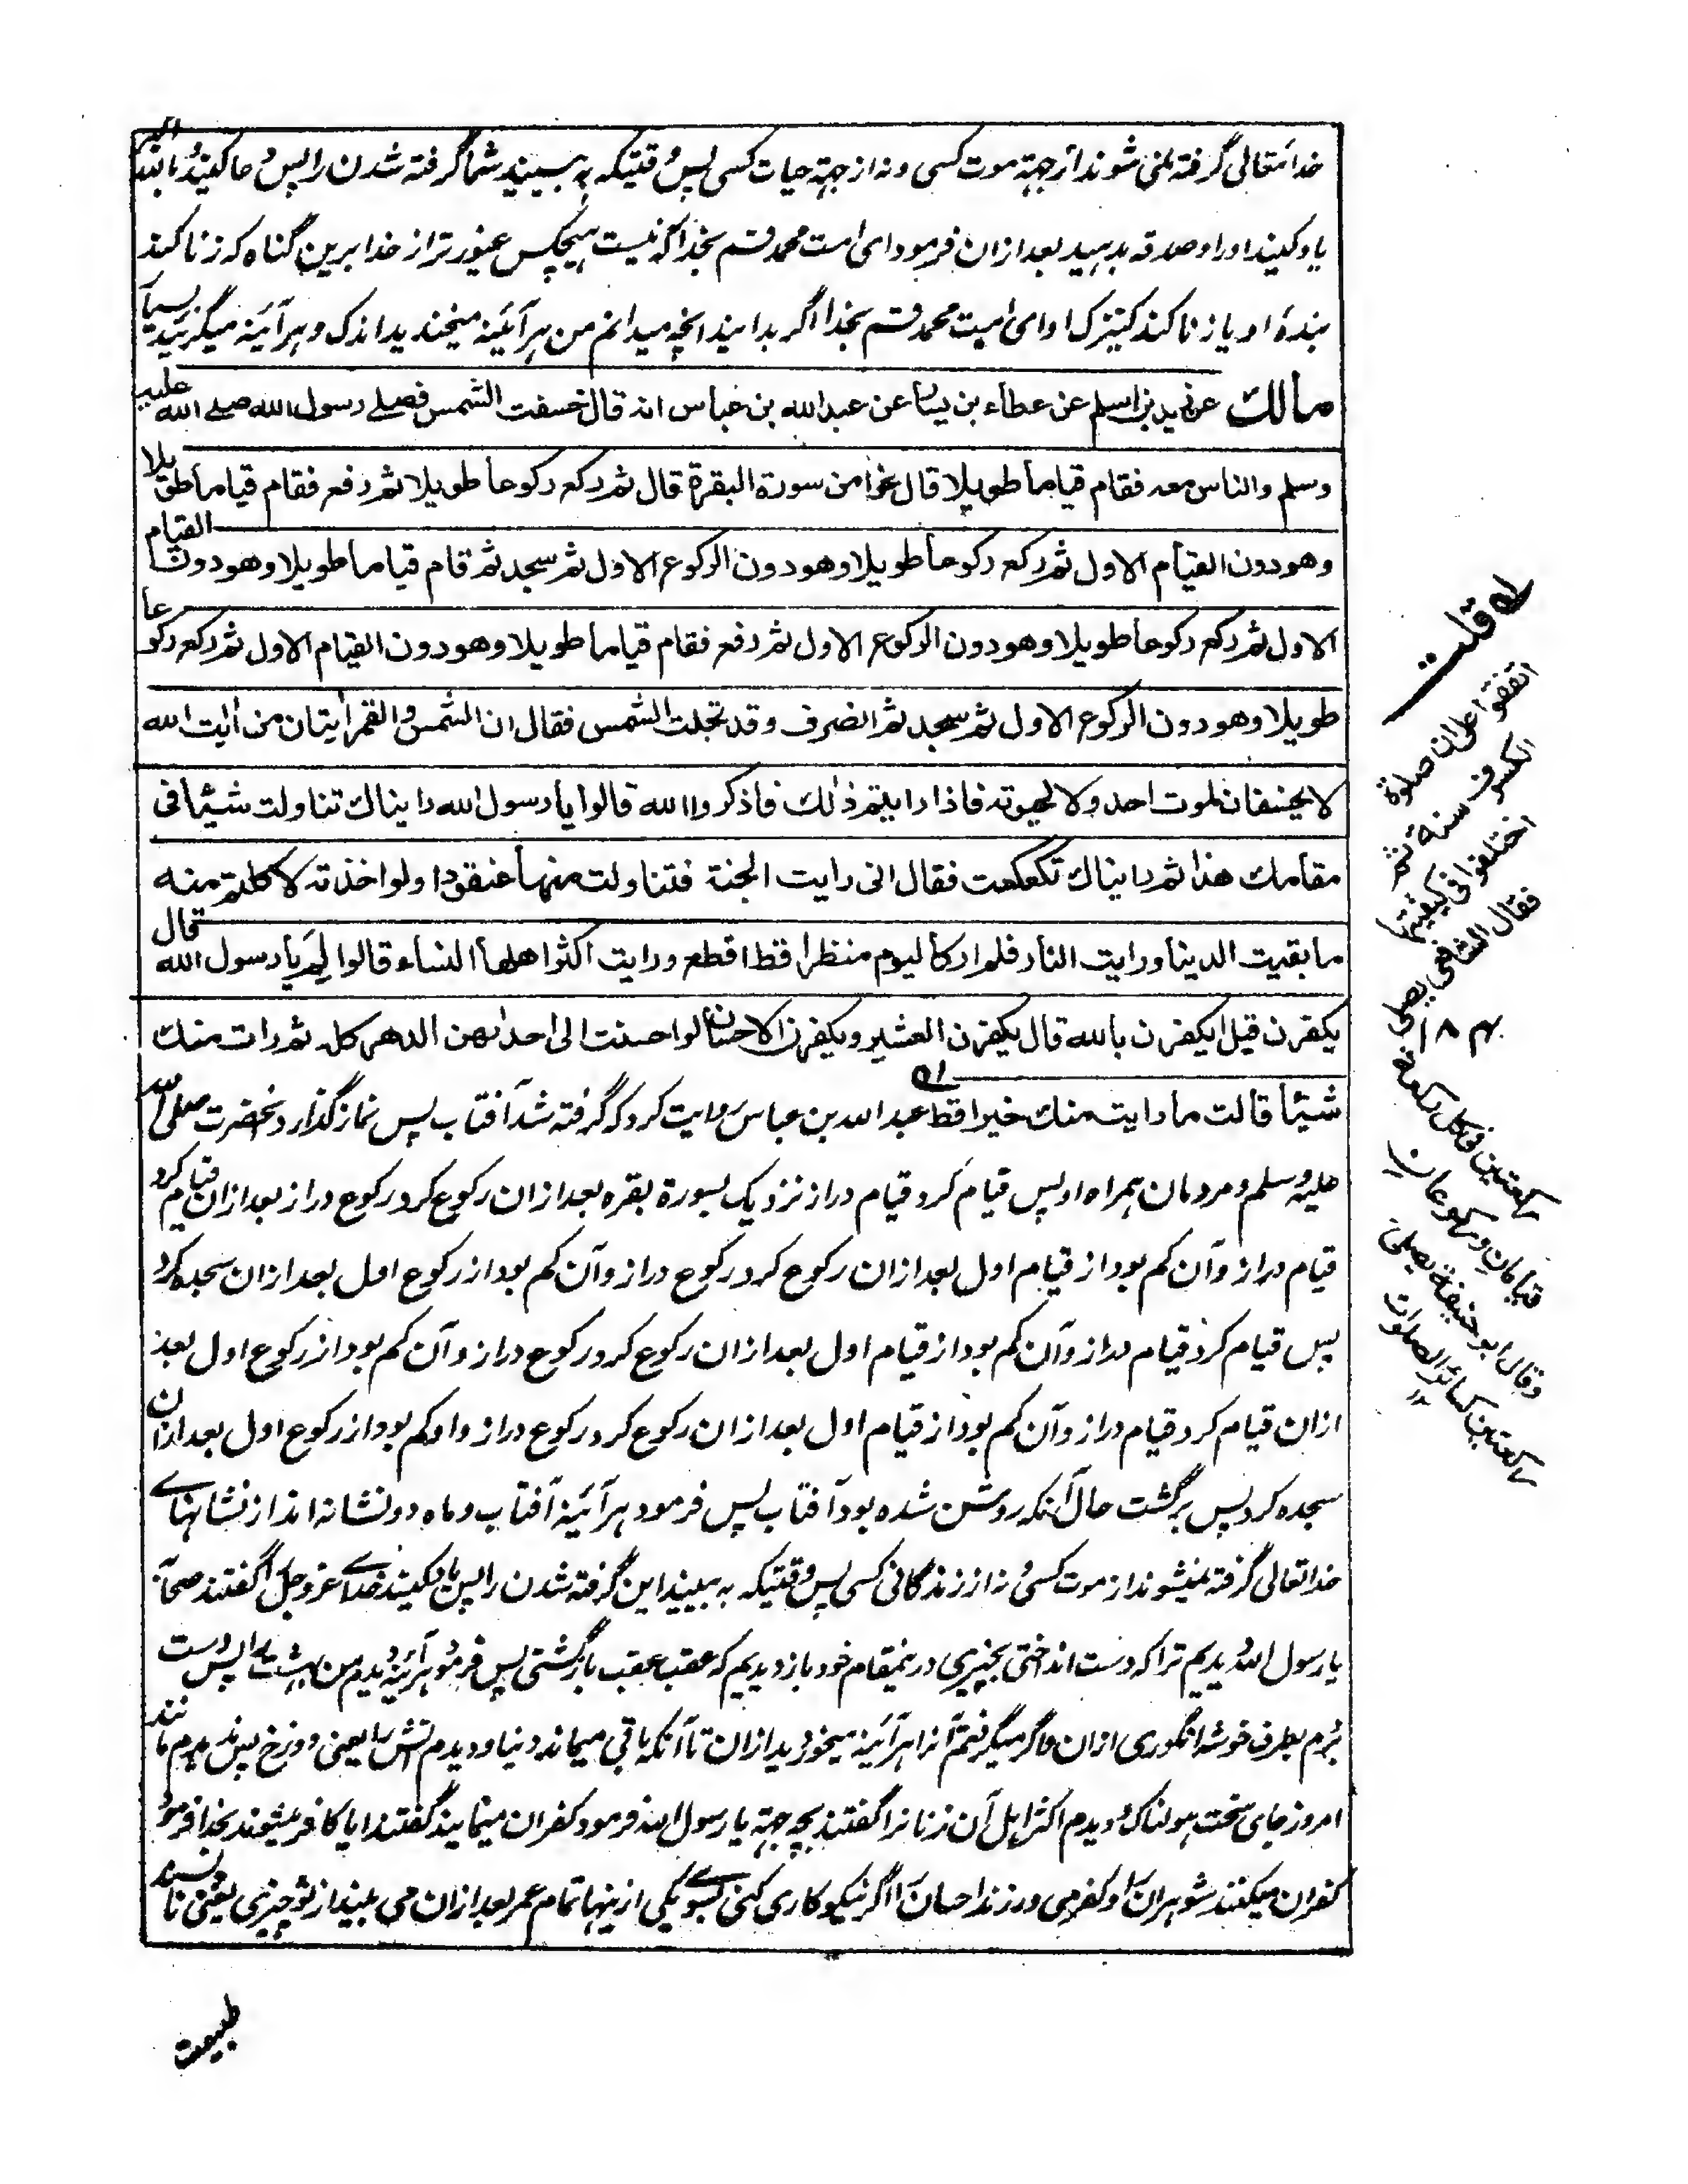 خدایتعالی گرفته نمی شوند از جهة موت کسی و نه از جهة حیات کسی پس وقتیکه به بینید شما گرفته شدن را پس دعا کنید و بانند اکبر
یاد کنید او را و صدقه بدهید بعد ازان فرمود ای امت محمد قسم بخدا که نیست هیچکس غیور تر از خدا برین گناه که زنا کند
بندۀ او یا زنا کند کنیزک او ای امت محمد قسم بخدا اگر بدانید انچه میدانم من هر آئینه میخندیدید اندک و هر آئینه میگریستید بسیار
مالك عن زيد بن اسلم عن عطاء بن يسار عن عبد الله بن عباس انه قال خسفت الشمس فصلے رسول الله صلے الله علیه
وسلم والناس معه فقام قياما طويلا قال نحوا من سورة البقرة قال ثم ركع ركوعا طويلا ثم رفع فقام قياما طويلا
وهو دون القيام الاول ثم ركع ركوعا طويلا وهو دون الركوع الاول ثم سجد ثم قام قياما طويلا وهو دون القيام
الاول ثم ركع ركوعا طويلا وهو دون الركوع الاول ثم رفع فقام قياما طويلا وهو دون القيام الاول ثم ركع ركوعا
طويلا وهو دون الركوع الاول ثم سجد ثم انصرف وقد تجلت الشمس فقال ان الشمس والقمر أيتان من أيت الله
لا يخسفان لموت احد ولا لحيوته فاذا رايتم ذلك فاذكروا الله قالوا يا رسول الله رايناك تناولت شيئا فى
مقامك هذا ثم رايناك تكعكعت فقال انى رايت الجنة فتناولت منها عنقودا ولو اخذته لاكلتم منه
ما بقيت الدنيا ورايت النار فلم ار كاليوم منظرا قط افظع ورايت اكثر اهلها النساء قالوا لم يا رسول الله قال
يكفرن قيل ايكفرن بالله قال يكفرن العشير ويكفرن الاحسان لو احسنت الى احدىهن الدهر كله ثم رات منك
شيئا قالت ما رايت منك خيرا قط له عبد الله بن عباس روایت کرد که گرفته شد آفتاب پس نماز گذارد آنحضرت صلی الله
علیه وسلم و مردمان همراه او پس قیام کرد قیام دراز نزدیک بسورة بقره بعد ازان رکوع کرد رکوع دراز بعد ازان قیام کرد
قیام دراز و آن کم بود از قیام اول بعد ازان رکوع کرد رکوع دراز و آن کم بود از رکوع اول بعد ازان سجده کرد
پس قیام کرد قیام دراز و آن کم بود از قیام اول بعد ازان رکوع کرد رکوع دراز و آن کم بود از رکوع اول بعد
ازان قیام کرد قیام دراز و آن کم بود از قیام اول بعد ازان رکوع کرد رکوع دراز و او کم بود از رکوع اول بعد ازان
سجده کرد پس برگشت حال آنکه روشن شده بود آفتاب پس فرمود هر آئینه آفتاب و ماه دو نشانه اند از نشانهائے
خدا تعالی گرفته نمیشوند از موت کسی و نه از زندگانی کسی پس وقتیکه به بینید این گرفته شدن را پس یاد کنید خدائے عز و جل را گفتند صحابه
یا رسول الله دیدیم ترا که دست انداختی بچیزی درینمقام خود باز دیدیم که عقب عقب بازگشتی پس فرمود هر آئینه دیدم من بهشت را پس دست
بردم بطرف خوشۀ انگوری ازان و اگر میگرفتم آنرا هر آئینه میخوردید ازان تا آنکه باقی میماند دنیا و دیدم آتش را یعنی دوزخ پس ندیدم مانند
امروز جای سخت هولناک و دیدم اکثر اهل آن زنانرا گفتند بچه جهة یا رسول الله فرمود کفران مینمایند گفتند ایا کافر میشوند بخدا فرمود
کفران میکنند شوهران را و کفر می ورزند احسان را اگر نیکو کاری کنی بسوئے یکی از ینها تمام عمر بعد ازان می بیند از تو چیزی یعنی نا پسند
طبیعت
له قلت
اتفقوا على ان صلوة
الكسوف سنة ثم
اختلفوا فى كيفيتها
فقال الشافعى يصلى
بهم ١٨
ركعتين فى كل ركعة
قيامان وركوعان
وقال ابو حنيفة يصلى
ركعتين كسائر الصلوات
١٢